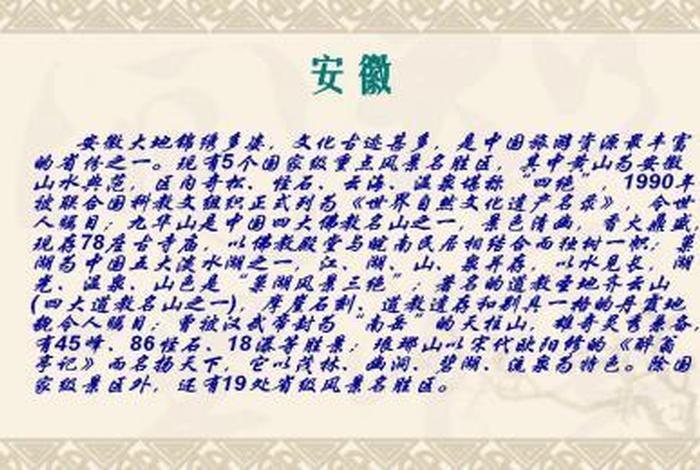 安徽
安徽大地锦绣多姿，文化古迹甚多，是中国旅游资源最丰富
的省份之一。现有5个国家级重点风景名胜区，其中黄山为安徽
山水典范，区内奇松、怪石、云海、温泉堪称“四绝”，1990年
被联合国科教文组织正式列为《世界自然文化遗产名录》，令世
人瞩目；九华山是中国四大佛教名山之一，景色清幽，香火鼎盛，
现存78座古寺庙，以佛教殿堂与皖南民居相结合而独树一帜；巢
湖为中国五大淡水湖之一，江、湖、山、泉并存，以水见长，湖
光、温泉、山色是“巢湖风景三绝”；著名的道教圣地齐云山
(四大道教名山之一)，摩崖石刻、道教遗存和别具一格的丹霞地
貌令人瞩目；曾被汉武帝封为“南岳”的天柱山，雄奇灵秀兼备
有45峰、86怪石、18瀑等胜景；琅琊山以宋代欧阳修的《醉翁
亭记》而名扬天下，它以茂林、幽洞、碧湖、流泉为特色。除国
家级景区外，还有19处省级风景名胜区。